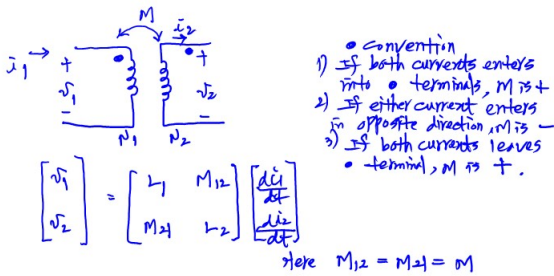 M
i₁ → + v₁ −
i₂ → + v₂ −
N₁ N₂
• convention
1) If both currents enters
into • terminals, M is +
2) If either current enters
in opposite direction, M is −
3) If both currents leaves
• terminal, M is +.
[v₁ v₂] = [L₁ M₁₂ M₂₁ L₂] [di₁/dt di₂/dt]
Here M₁₂ = M₂₁ = M